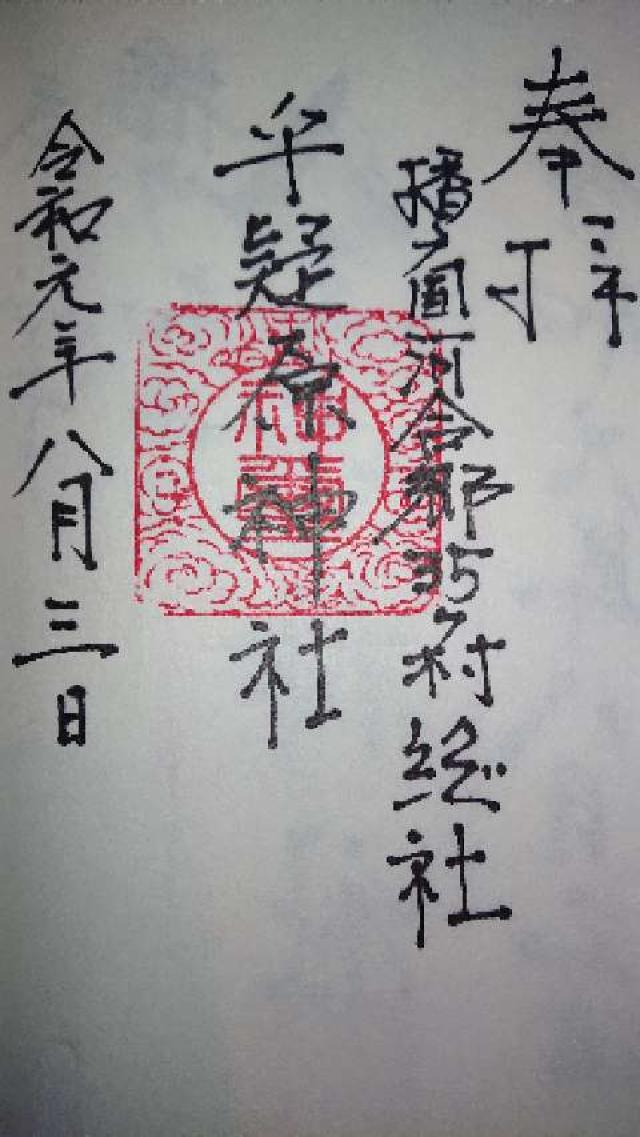 奉拝
播国河合郷35ヶ村総社
乎疑原神社
令和元年八月三日